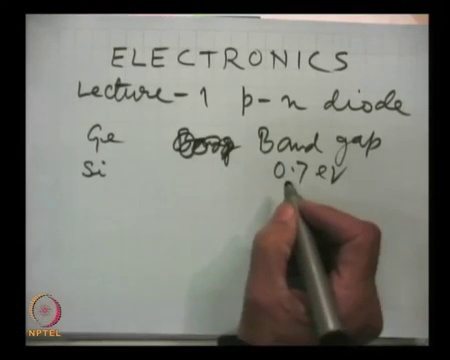 ELECTRONICS
Lecture - 1 p-n diode
Ge Band gap
Si 0.7 eV
NPTEL